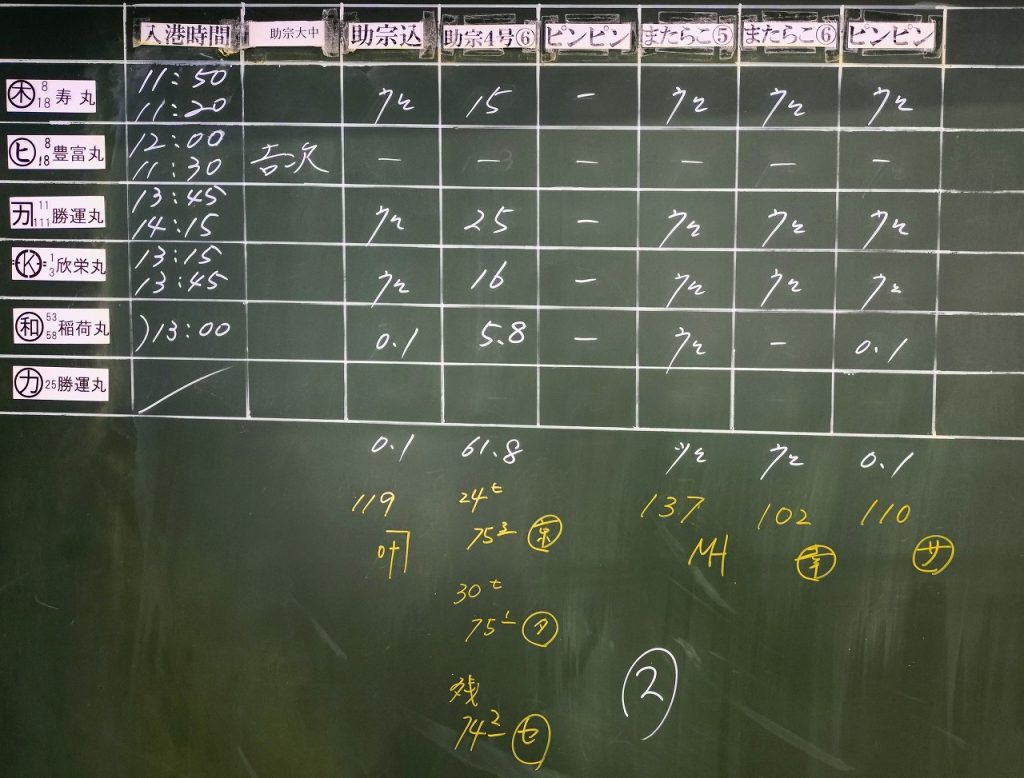 入港時間 助宗大中 助宗込 助宗4号⑥ ピンピン またらこ⑤ またらこ⑥ ピンピン
㊍ 8 18 寿丸 11:50 11:20 ウヒ 15 − ウヒ ウヒ ウヒ
ヒ 8 18 豊富丸 12:00 11:30 吉次 − − − − − −
カ 11 111 勝運丸 13:45 14:15 ウヒ 25 − ウヒ ウヒ ウヒ
K 1 3 欣栄丸 13:15 13:45 ウヒ 16 − ウヒ ウヒ ウヒ
和 53 58 稲荷丸 )13:00 0.1 5.8 − ウヒ − 0.1
カ 25 勝運丸
0.1 61.8 ウヒ 0.1
119 24t 137 102 110
叶 75 MH サ
30t
75 タ
残
74 セ
2